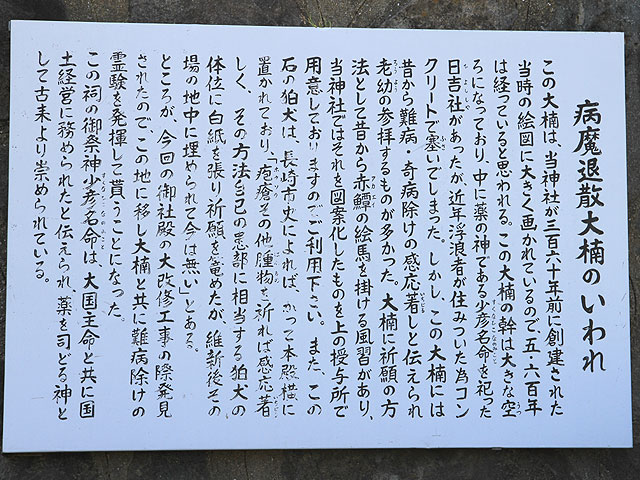 病魔退散大楠のいわれ
この大楠は、当神社が三百六十年前に創建された
当時の絵図に大きく画かれているので、五・六百年
は経っていると思われる。この大楠の幹は大きな空
ろになっており、中に薬の神である少彦名命を祀った
日吉社があったが、近年浮浪者が住みついた為コン
クリートで塞いでしまった。しかし、この大楠には
昔から難病・奇病除けの感応著しと伝えられ
老幼の参拝するものが多かった。大楠に祈願の方
法として昔から赤鱏の絵馬を掛ける風習があり、
当神社ではそれを図案化したものを上の授与所で
用意しておりますのでご利用下さい。また、この
石の狛犬は、長崎市史によれば、かつて本殿横に
置かれており、「疱瘡その他腫物を祈れば感応著
しく、その方法は自己の患部に相当する狛犬の
体位に白紙を張り祈願を篭めたが、維新後その
場の地中に埋められて今は無い」とある。
ところが、今回の御社殿の大改修工事の際発見
されたので、この地に移し大楠と共に難病除けの
霊験を発揮して貰うことになった。
この祠の御祭神少彦名命は、大国主命と共に国
土経営に務められたと伝えられ、薬を司どる神と
して古来より崇められている。